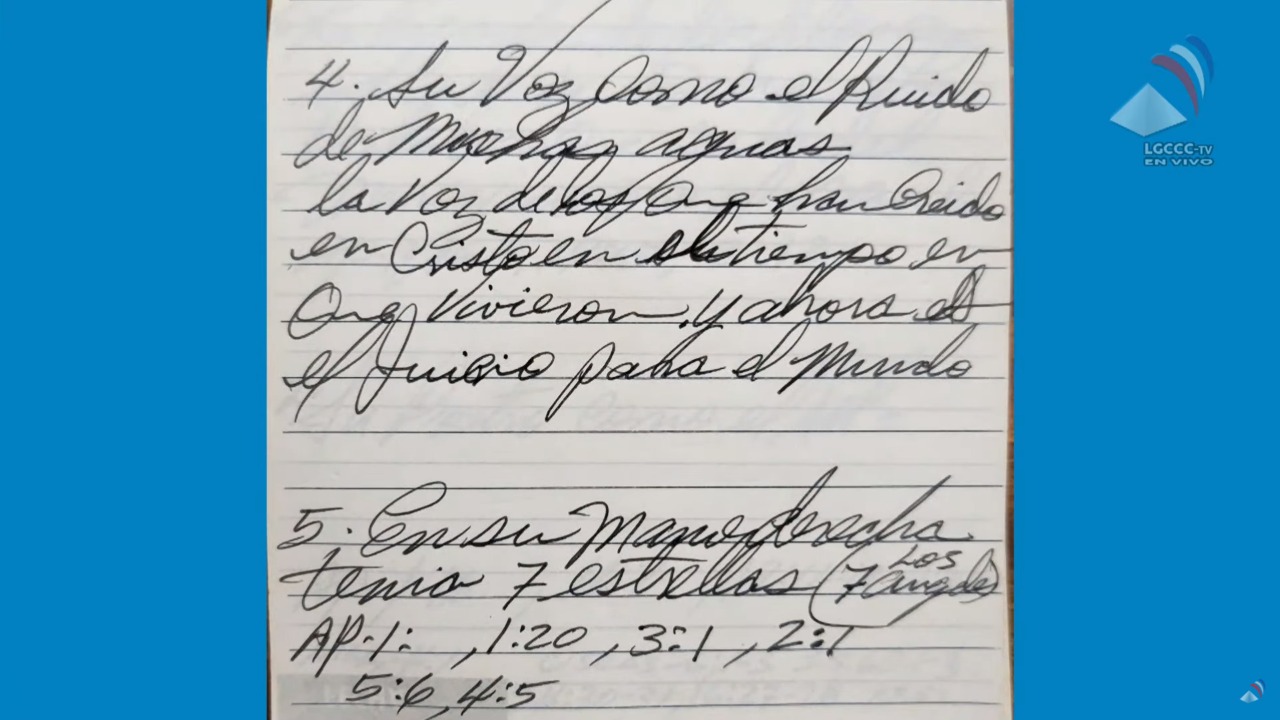 4. Su Voz como el Ruido
de Muchas aguas
la Voz de los que han Creido
en Cristo en el tiempo en
que vivieron, y ahora es
el Juicio para el Mundo
5. En su Mano derecha
tenia 7 estrellas (Los 7 angeles)
AP. 1: , 1:20 , 3:1 , 2:1
5:6, 4:5
LGCCC-TV
EN VIVO